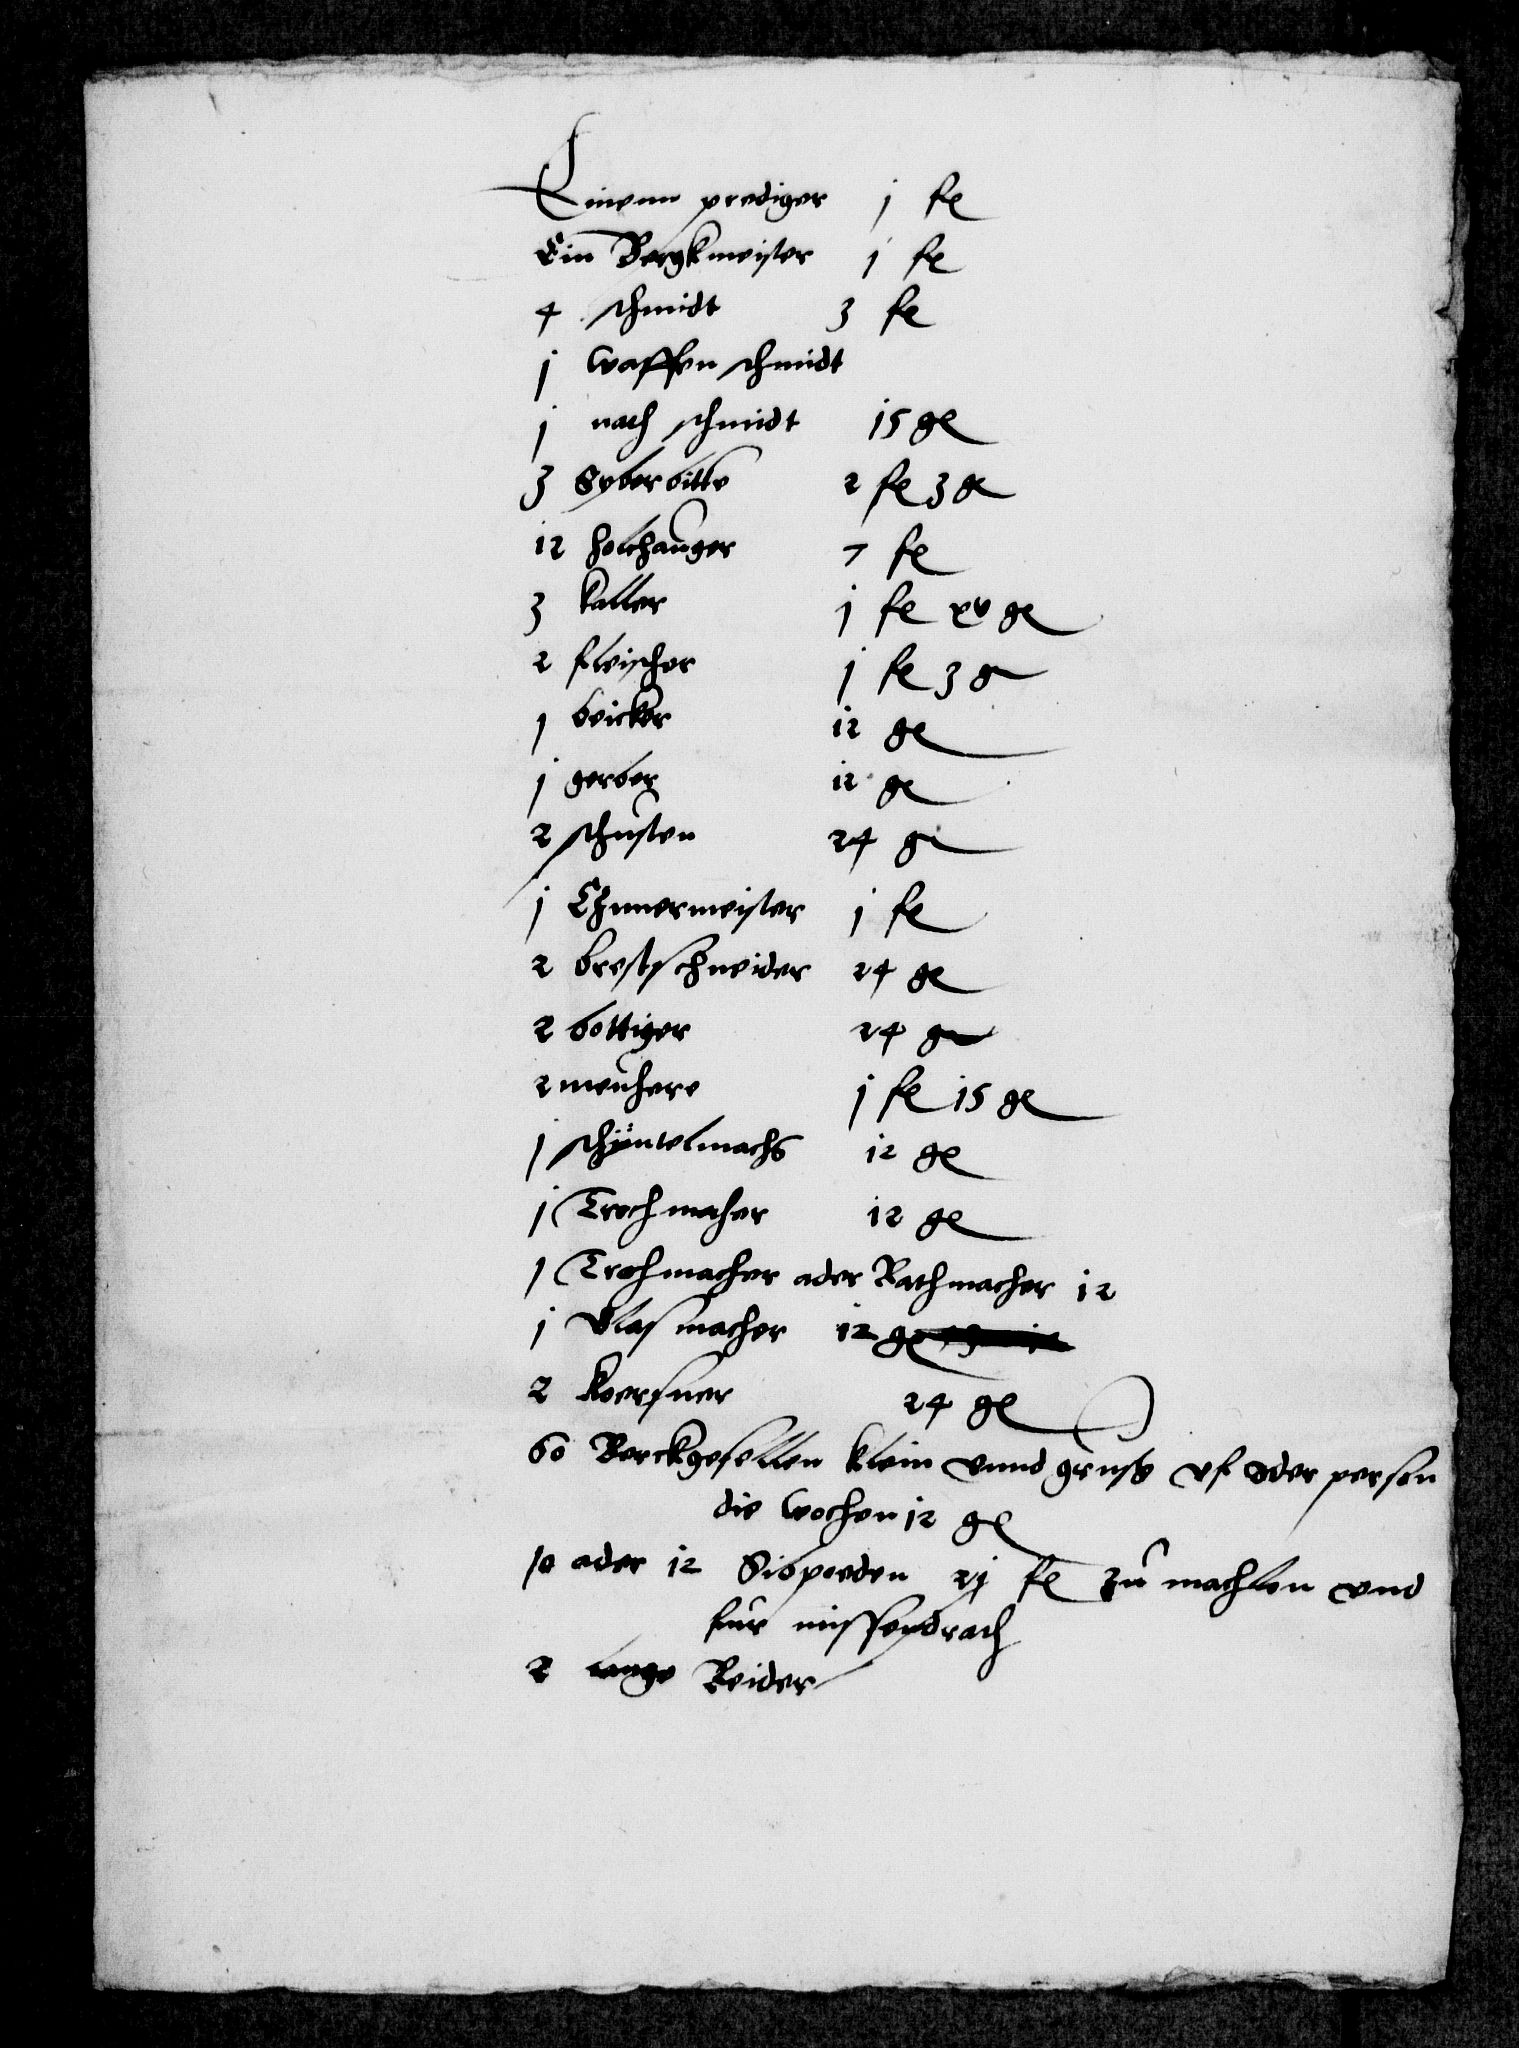 Einenn prediger j fl
Ein Bergkmeister j fl
4 schmidt 3 fl
j waffen schmidt
j nach schmidt 15 gl
3 Syberbitte 2 fl 3 gl
12 holchauger 7 fl
3 kaller j fl xv gl
2 fleischer j fl 3 g
j beicker 12 gl
j gerber 12 gl
2 schusten 24 gl
j Czymermeister j fl
2 bretschneider 24 gl
2 bottiger 24 gl
2 meuhere j fl 15 gl
j schyntelmachs 12 gl
j Trechmacher 12 gl
j Trechmacher ader Rathmacher 12
j Blasmacher 12 gl
2 koersner 24 gl
60 Berckgesellen klein vnnd gruss vf Jder person
die wochen 12 gl
10 ader 12 fl zu machlen vnd
fur
2 lange Reider